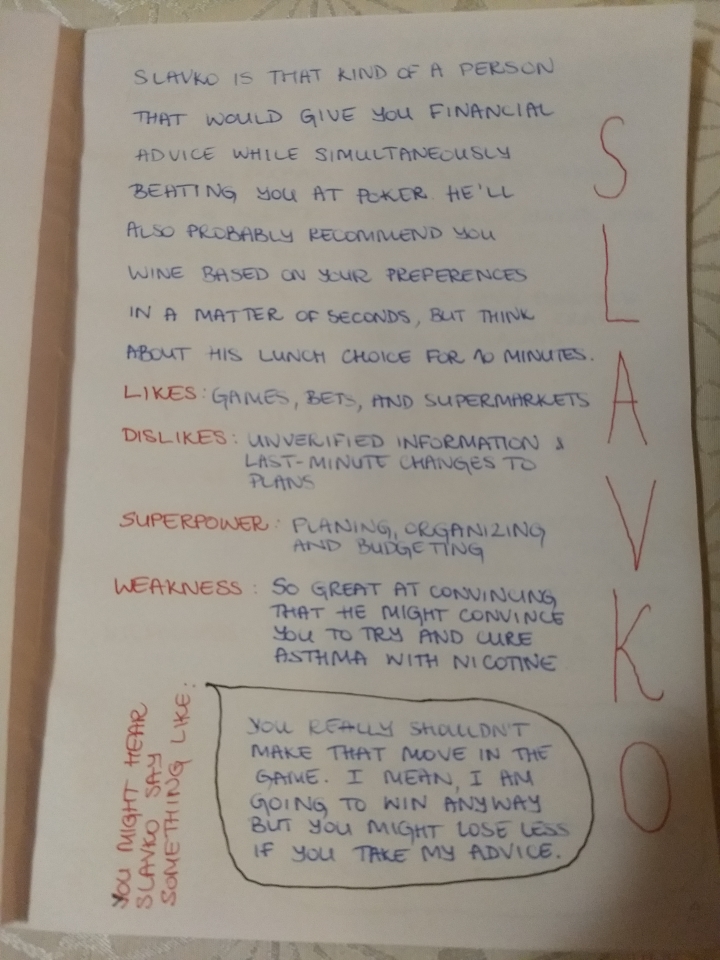 SLAVKO IS THAT KIND OF A PERSON
THAT WOULD GIVE YOU FINANCIAL
ADVICE WHILE SIMULTANEOUSLY
BEATING YOU AT POKER. HE'LL
ALSO PROBABLY RECOMMEND YOU
WINE BASED ON YOUR PREPERENCES
IN A MATTER OF SECONDS, BUT THINK
ABOUT HIS LUNCH CHOICE FOR 10 MINUTES.
LIKES: GAMES, BETS, AND SUPERMARKETS
DISLIKES: UNVERIFIED INFORMATION &
LAST-MINUTE CHANGES TO
PLANS
SUPERPOWER: PLANING, ORGANIZING
AND BUDGETING
WEAKNESS: SO GREAT AT CONVINCING
THAT HE MIGHT CONVINCE
YOU TO TRY AND CURE
ASTHMA WITH NICOTINE
YOU MIGHT HEAR
SLAVKO SAY
SOMETHING LIKE:
YOU REALLY SHOULDN'T
MAKE THAT MOVE IN THE
GAME. I MEAN, I AM
GOING TO WIN ANYWAY
BUT YOU MIGHT LOSE LESS
IF YOU TAKE MY ADVICE.
SLAVKO